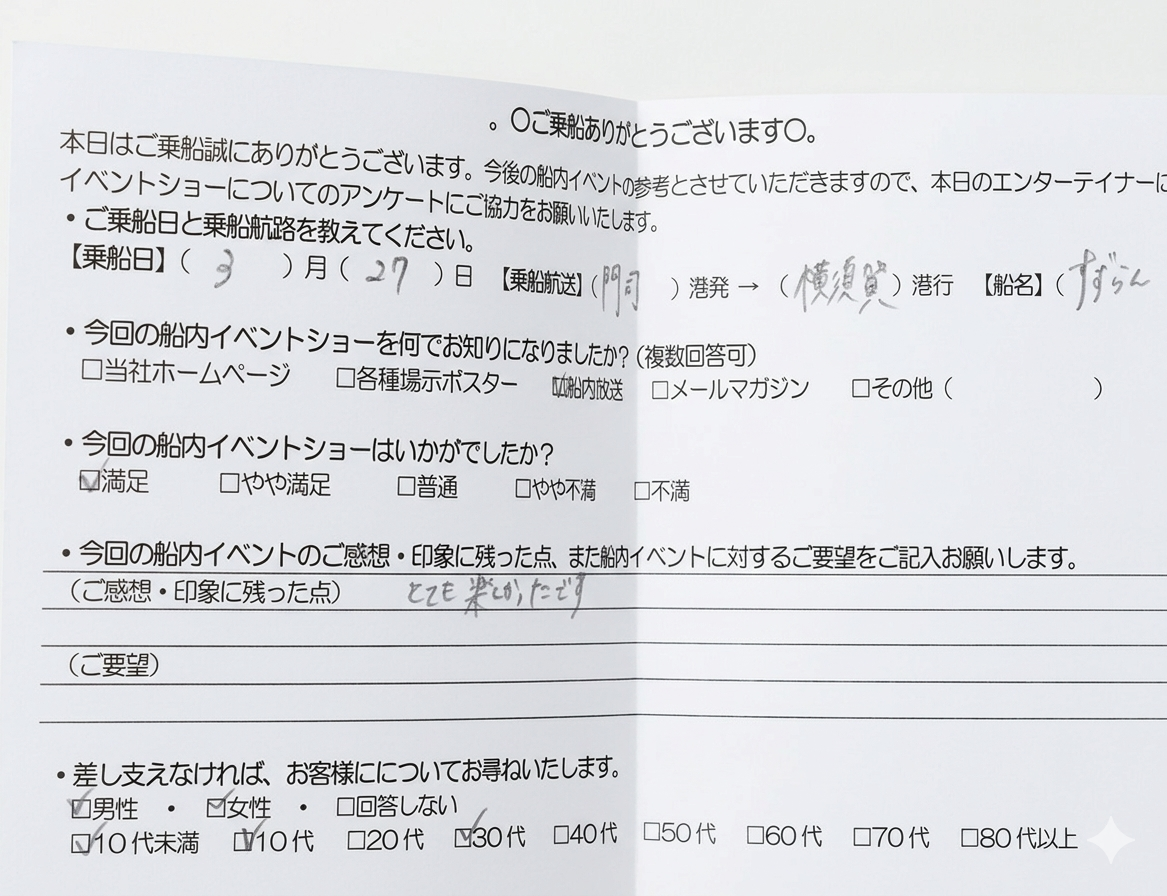 。〇ご乗船ありがとうございます〇。
本日はご乗船誠にありがとうございます。今後の船内イベントの参考とさせていただきますので、本日のエンターテイナーに
イベントショーについてのアンケートにご協力をお願いいたします。
・ご乗船日と乗船航路を教えてください。
【乗船日】( 3 )月( 27 )日 【乗船航送】(門司 )港発→(横須賀)港行 【船名】(すずらん
・今回の船内イベントショーを何でお知りになりましたか?(複数回答可)
□当社ホームページ □各種場示ポスター ☑船内放送 □メールマガジン □その他( )
・今回の船内イベントショーはいかがでしたか?
☑満足 □やや満足 □普通 □やや不満 □不満
・今回の船内イベントのご感想・印象に残った点、また船内イベントに対するご要望をご記入お願いします。
(ご感想・印象に残った点) とても楽しかったです
(ご要望)
・差し支えなければ、お客様にについてお尋ねいたします。
☑男性 ・ ☑女性 ・ □回答しない
☑10代未満 ☑10代 □20代 ☑30代 □40代 □50代 □60代 □70代 □80代以上